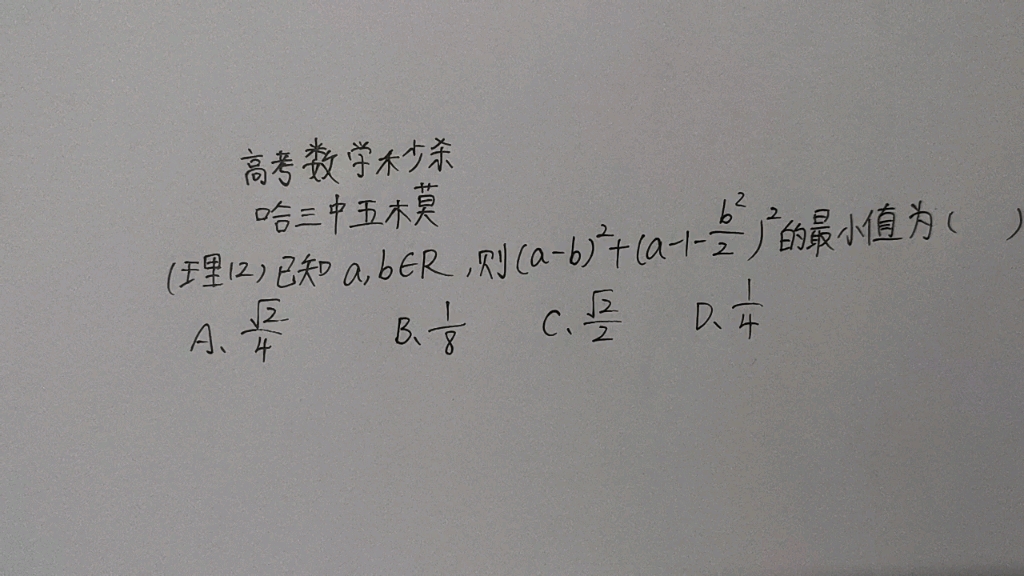 高考数学秒杀
哈三中五模
(理12)已知 a,b∈R,则(a-b)²+(a-1-b²/2)²的最小值为( )
A、√2/4 B、1/8 C、√2/2 D、1/4